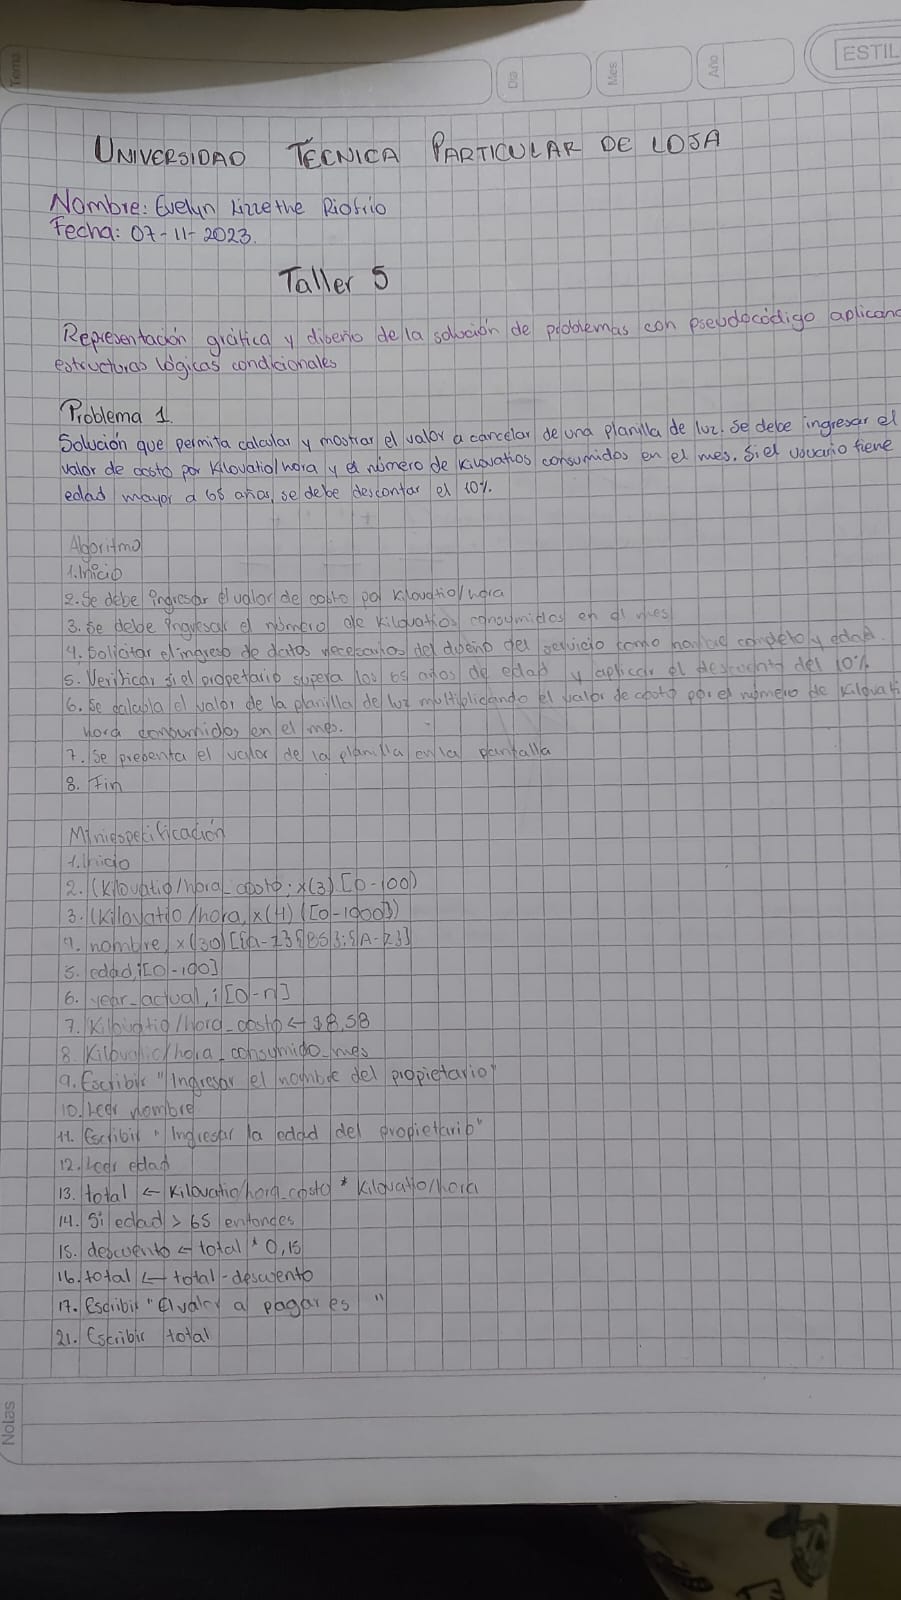 Tema
Día
Mes
Año
ESTIL
UNIVERSIDAD TÉCNICA PARTICULAR DE LOJA
Nombre: Evelyn Lizzethe Riofrio
Fecha: 07-11-2023.
Taller 5
Representación gráfica y diseño de la solución de problemas con pseudocódigo aplicand
estructuras lógicas condicionales
Problema 1.
Solución que permita calcular y mostrar el valor a cancelar de una planilla de luz. Se debe ingresar el
valor de costo por Kilovatio/hora y el número de kilovatios consumidos en el mes. Si el usuario tiene
edad mayor a 65 años, se debe descontar el 10%.
Algoritmo
1. Inicio
2. Se debe ingresar el valor de costo por kilovatio/hora
3. Se debe ingresar el número de kilovatios consumidos en el mes
4. Solicitar el ingreso de datos necesarios del dueño del servicio como nombre completo y edad.
5. Verificar si el propetario supera los 65 años de edad y aplicar el descuento del 10%
6. Se calcula el valor de la planilla de luz multiplicando el valor de costo por el número de kilovati
hora consumidos en el mes.
7. Se presenta el valor de la planilla en la pantalla
8. Fin
Miniespecificación
1. Inicio
2. (Kilovatio/hora_costo; x(3) [0-100)
3. (Kilovatio/hora, x(4) ([0-1000])
4. nombre, x(30) [{a-z}{BS}:{A-Z}]
5. edad, i[0-100]
6. year_actual, i [0-n]
7. Kilovatio/hora_costo ← $8,58
8. Kilovatio/hora_consumido_mes
9. Escribir "Ingresar el nombre del propietario"
10. Leer nombre
11. Escribir "Ingresar la edad del propietario"
12. Leer edad
13. total ← Kilovatio/hora_costo * Kilovatio/hora
14. Si edad > 65 entonces
15. descuento ← total * 0,15
16. total ← total - descuento
17. Escribir "El valor a pagar es "
21. Escribir total
Notas